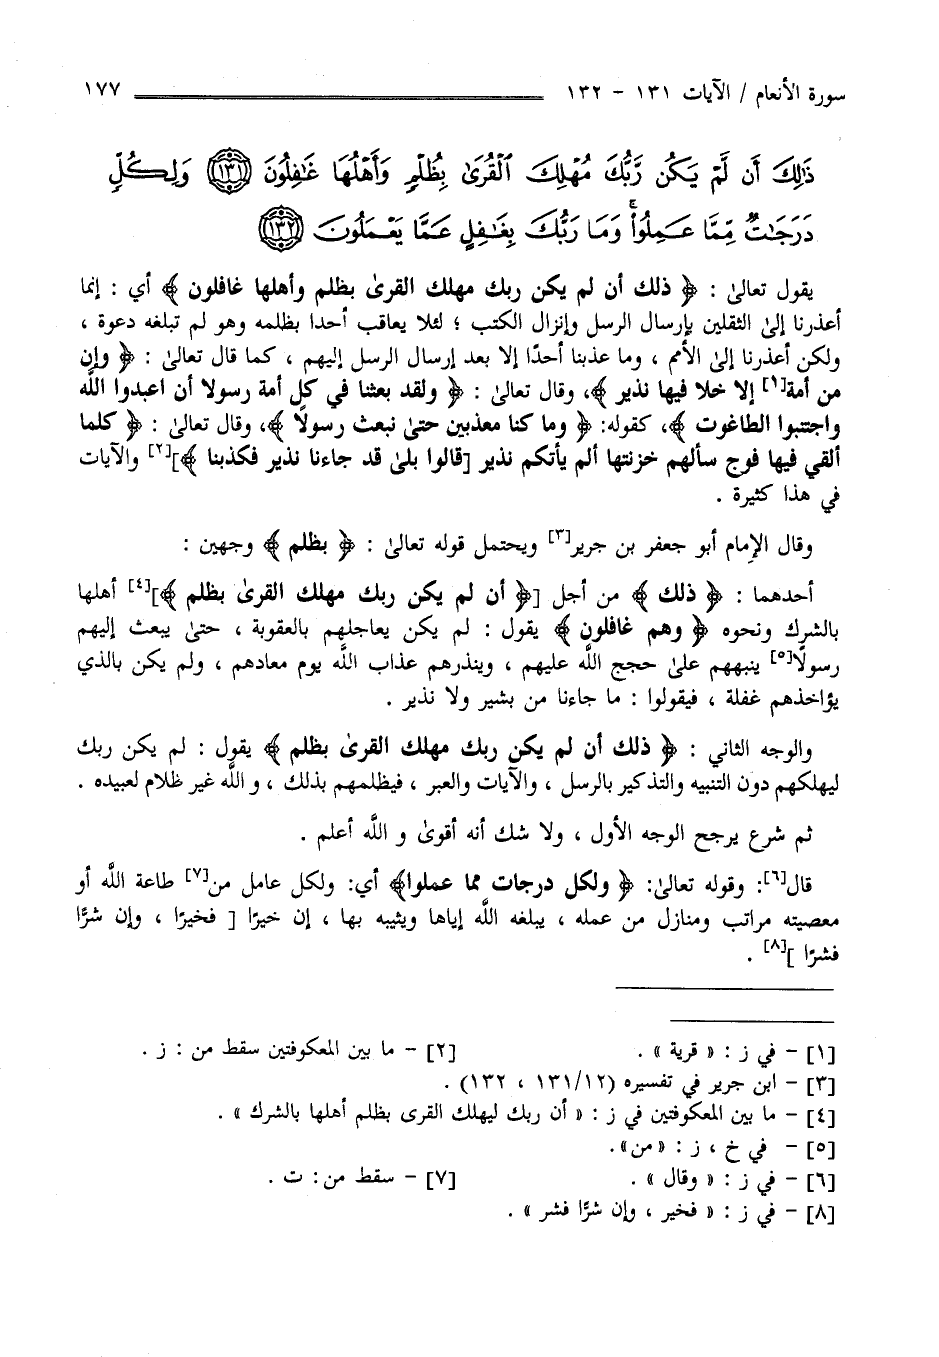 سورة الأنعام / الآيات ١٣١ - ١٣٢ ١٧٧
ذَٰلِكَ أَن لَّمْ يَكُن رَّبُّكَ مُهْلِكَ ٱلْقُرَىٰ بِظُلْمٍ وَأَهْلُهَا غَٰفِلُونَ ١٣١ وَلِكُلٍّ
دَرَجَٰتٌ مِّمَّا عَمِلُوا۟ ۚ وَمَا رَبُّكَ بِغَٰفِلٍ عَمَّا يَعْمَلُونَ ١٣٢
يقول تعالىٰ : ﴿ ذلك أن لم يكن ربك مهلك القرىٰ بظلم وأهلها غافلون ﴾ أي : إنما
أعذرنا إلىٰ الثقلين بإرسال الرسل وإنزال الكتب ؛ لئلا يعاقب أحدا بظلمه وهو لم تبلغه دعوة ،
ولكن أعذرنا إلىٰ الأمم ، وما عذبنا أحدًا إلا بعد إرسال الرسل إليهم ، كما قال تعالىٰ : ﴿ وإن
من أمة[١] إلا خلا فيها نذير ﴾، وقال تعالىٰ : ﴿ ولقد بعثنا في كل أمة رسولا أن اعبدوا اللَّه
واجتنبوا الطاغوت ﴾، كقوله: ﴿ وما كنا معذبين حتىٰ نبعث رسولًا ﴾، وقال تعالىٰ : ﴿ كلما
ألقي فيها فوج سألهم خزنتها ألم يأتكم نذير [قالوا بلىٰ قد جاءنا نذير فكذبنا ﴾][٢] والآيات
في هذا كثيرة .
وقال الإمام أبو جعفر بن جرير[٣] ويحتمل قوله تعالىٰ : ﴿ بظلم ﴾ وجهين :
أحدهما : ﴿ ذلك ﴾ من أجل [﴿ أن لم يكن ربك مهلك القرىٰ بظلم ﴾][٤] أهلها
بالشرك ونحوه ﴿ وهم غافلون ﴾ يقول : لم يكن يعاجلهم بالعقوبة ، حتىٰ يبعث إليهم
رسولًا[٥] ينبههم علىٰ حجج اللَّه عليهم ، وينذرهم عذاب اللَّه يوم معادهم ، ولم يكن بالذي
يؤاخذهم غفلة ، فيقولوا : ما جاءنا من بشير ولا نذير .
والوجه الثاني : ﴿ ذلك أن لم يكن ربك مهلك القرىٰ بظلم ﴾ يقول : لم يكن ربك
ليهلكهم دون التنبيه والتذكير بالرسل ، والآيات والعبر ، فيظلمهم بذلك ، و اللَّه غير ظلام لعبيده .
ثم شرع يرجح الوجه الأول ، ولا شك أنه أقوىٰ و اللَّه أعلم .
قال[٦]: وقوله تعالىٰ: ﴿ ولكل درجات مما عملوا﴾ أي: ولكل عامل من[٧] طاعة اللَّه أو
معصيته مراتب ومنازل من عمله ، يبلغه اللَّه إياها ويثيبه بها ، إن خيرًا [ فخيرًا ، وإن شرًّا
فشرًا ][٨] .
[١] - في ز : « قرية » . [٢] - ما بين المعكوفتين سقط من : ز .
[٣] - ابن جرير في تفسيره (١٣١/١٢ ، ١٣٢) .
[٤] - ما بين المعكوفتين في ز : « أن ربك ليهلك القرى بظلم أهلها بالشرك » .
[٥] - في خ ، ز : «من».
[٦] - في ز : « وقال » . [٧] - سقط من : ت .
[٨] - في ز : « فخير ، وإن شرًّا فشر » .